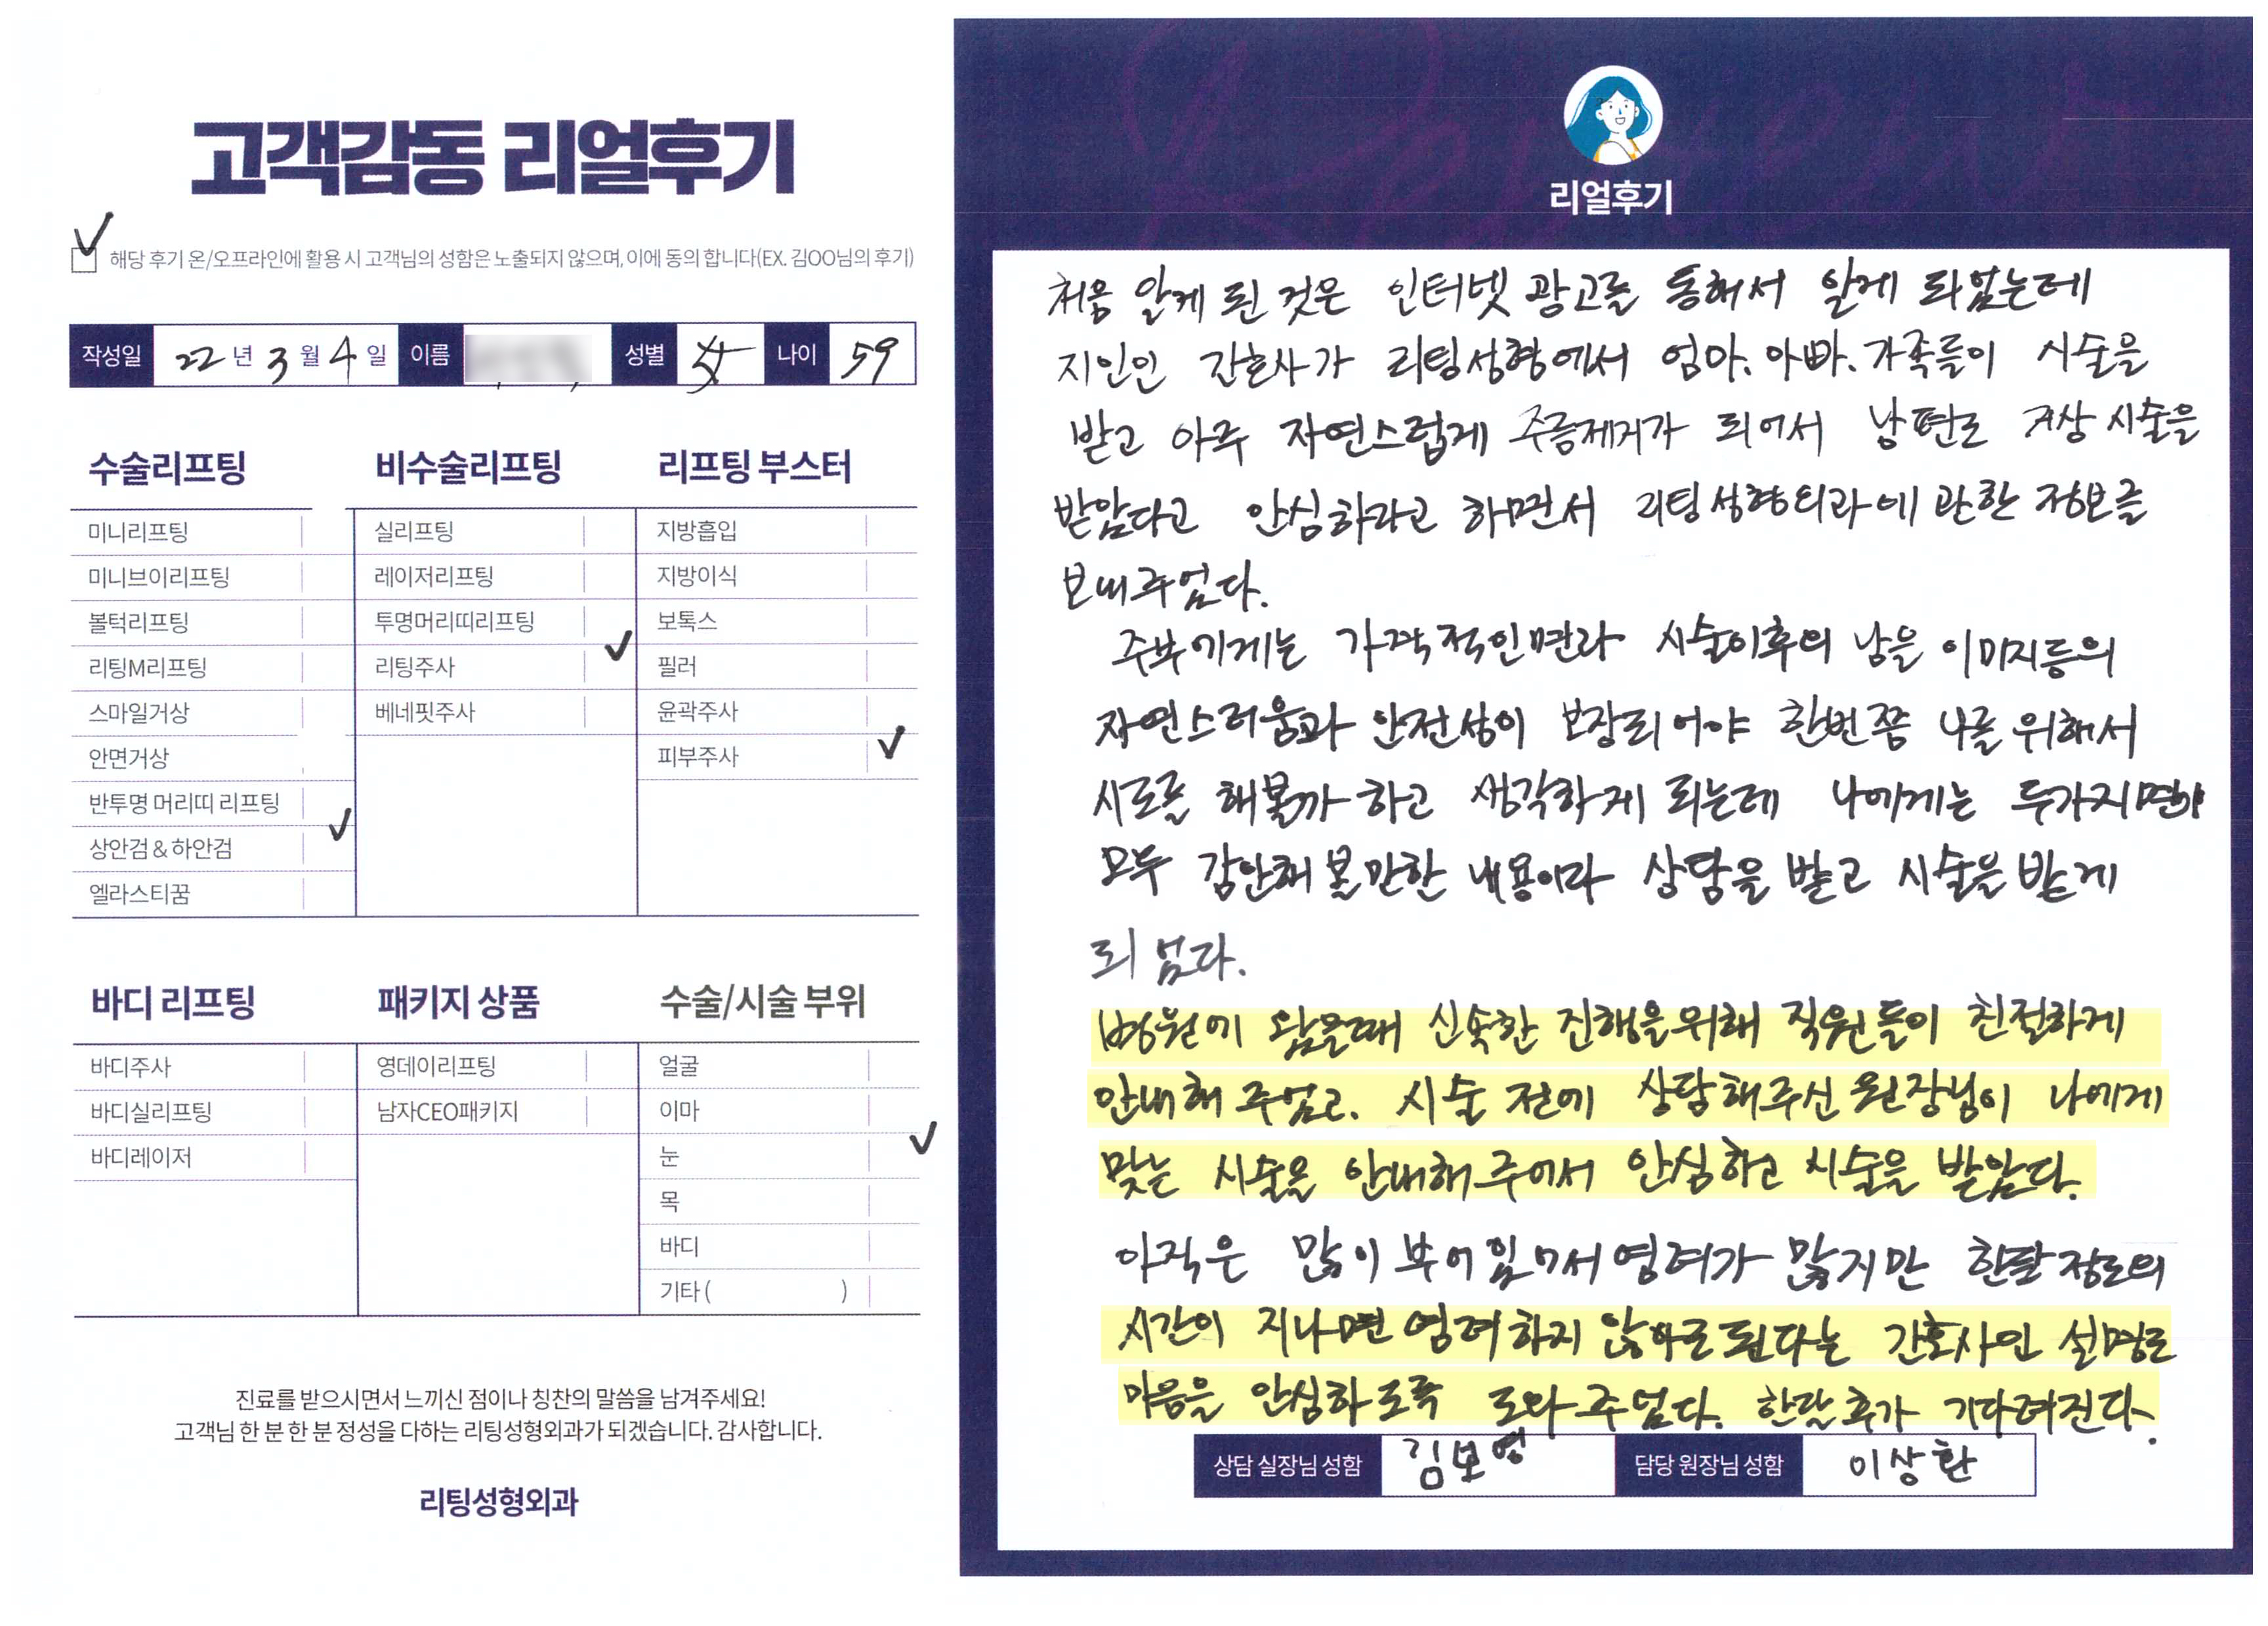 고객감동 리얼후기
해당 후기 온/오프라인에 활용 시 고객님의 성함은 노출되지 않으며, 이에 동의 합니다(EX. 김OO님의 후기)
작성일 22년 3월 4일 이름 성별 女 나이 59
수술리프팅
미니리프팅
미니브이리프팅
볼턱리프팅
리팅M리프팅
스마일거상
안면거상
반투명 머리띠 리프팅
상안검 & 하안검
엘라스티꿈
비수술리프팅
실리프팅
레이저리프팅
투명머리띠리프팅
리팅주사
베네핏주사
리프팅 부스터
지방흡입
지방이식
보톡스
필러
윤곽주사
피부주사
바디 리프팅
바디주사
바디실리프팅
바디레이저
패키지 상품
영데이리프팅
남자CEO패키지
수술/시술 부위
얼굴
이마
눈
목
바디
기타 ( )
진료를 받으시면서 느끼신 점이나 칭찬의 말씀을 남겨주세요!
고객님 한 분 한 분 정성을 다하는 리팅성형외과가 되겠습니다. 감사합니다.
리팅성형외과
리얼후기
처음 알게 된 것은 인터넷 광고를 통해서 알게 되었는데
지인인 간호사가 리팅성형에서 엄마. 아빠. 가족들이 시술을
받고 아주 자연스럽게 주름제거가 되어서 남편도 거상 시술을
받았다고 안심하라고 하면서 리팅성형외과에 관한 정보를
보내주었다.
주부에게는 가격적인면과 시술이후의 남을 이미지등의
자연스러움과 안전성이 보장되어야 한번쯤 나를 위해서
시도를 해볼까 하고 생각하게 되는데 나에게는 두가지면이
모두 감안해 볼만한 내용이라 상담을 받고 시술을 받게
되었다.
병원에 왔을때 신속한 진행을위해 직원들이 친절하게
안내해 주었고. 시술 전에 상담해주신 원장님이 나에게
맞는 시술을 안내해 주어서 안심하고 시술을 받았다.
아직은 많이 부어있어서 염려가 많지만 한달정도의
시간이 지나면 염려하지 않아도된다는 간호사의 설명도
마음을 안심하도록 도와주었다. 한달후가 기다려진다.
상담 실장님 성함 김보영 담당 원장님 성함 이상환